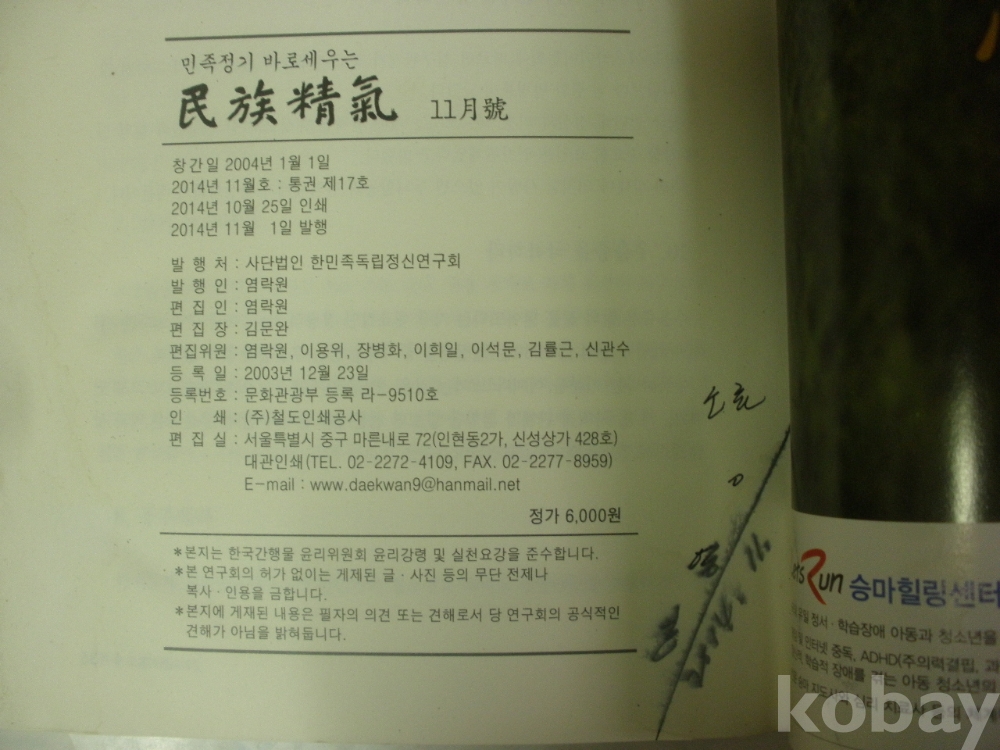 민족정기 바로세우는
民族精氣 11月號
창간일 2004년 1월 1일
2014년 11월호 : 통권 제17호
2014년 10월 25일 인쇄
2014년 11월 1일 발행
발 행 처 : 사단법인 한민족독립정신연구회
발 행 인 : 염락원
편 집 인 : 염락원
편 집 장 : 김문완
편집위원 : 염락원, 이용위, 장병화, 이희일, 이석문, 김률근, 신관수
등 록 일 : 2003년 12월 23일
등록번호 : 문화관광부 등록 라-9510호
인 쇄 : (주)철도인쇄공사
편 집 실 : 서울특별시 중구 마른내로 72(인현동2가, 신성상가 428호)
대관인쇄(TEL. 02-2272-4109, FAX. 02-2277-8959)
E-mail : www.daekwan9@hanmail.net
정가 6,000원
*본지는 한국간행물 윤리위원회 윤리강령 및 실천요강을 준수합니다.
*본 연구회의 허가 없이는 게제된 글 · 사진 등의 무단 전제나
복사 · 인용을 금합니다.
*본지에 게재된 내용은 필자의 의견 또는 견해로서 당 연구회의 공식적인
견해가 아님을 밝혀둡니다.
Run 승마힐링센터
정서 · 학습장애 아동과 청소년을
인터넷 중독, ADHD(주의력결핍, 과
학습적 장애를 겪는 아동 청소년의
kobay